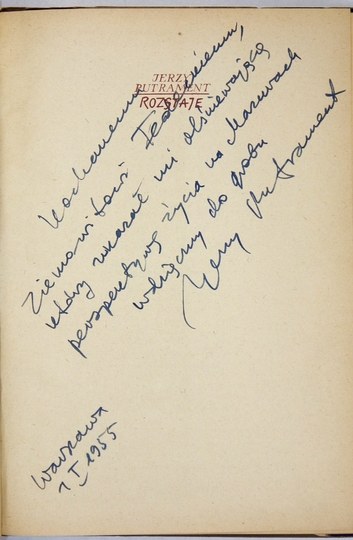 JERZY
PUTRAMENT
ROZSTAJE
Kochanemu
Ziemowitowi Fedeckiemu,
który wskazał mi olśniewającą
perspektywę życia na Mazurach
wdzięczny do grobu
Jerzy Putrament
Warszawa
1 I 1955